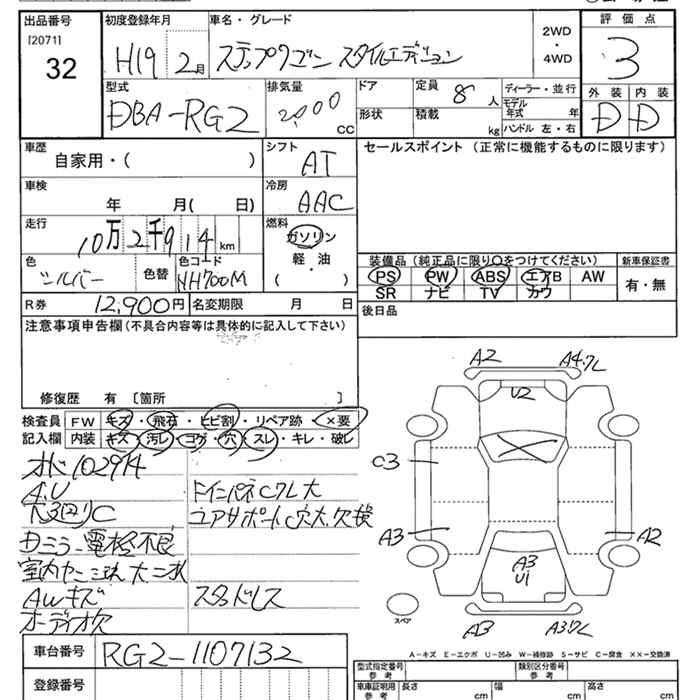 出品番号 初度登録年月 車名・グレード 評価点
[2071]
32
H19 2月 ステップワゴン スタイルエディション
2WD
・
4WD
3
型式 排気量 ドア 定員 8 人 ディーラー・並行 外装 内装
DBA-RG2 2000 cc 形状 積載 kg モデル年式 年 ハンドル 左・右 D D
車歴 シフト セールスポイント (正常に機能するものに限ります)
自家用・( ) AT
車検 冷房
年 月( 日) AAC
走行 燃料
10万2千914km ガソリン
軽・油
( )
色 シルバー 色替 色コード NH700M
装備品 (純正品に限り○をつけてください) 新車保証書
PS PW ABS エアB AW 有・無
SR ナビ TV カワ
R券 12,900円 名変期限 月 日 後日品
注意事項申告欄 (不具合内容等は具体的に記入して下さい)
修復歴 有 [箇所 ]
検査員 FW キズ・飛石・ヒビ割・リペア跡・×要
記入欄 内装 キズ・汚レ・コゲ・穴・スレ・キレ・破レ
102914
A.U
電格不良
AWキズ
オーディオ欠
スタッドレス
車台番号 RG2-1107132
登録番号
A2 A4.ワレ
U2
C3
A3 A2
A3
U1
スペア
A3 A3ワレ
A-キズ E-エクボ U-凹み W-補修跡 S-サビ C-腐食 ××-交換済
型式指定番号 参考 類別区分番号 参考
車庫証明用 参考 長さ cm 幅 cm 高さ cm